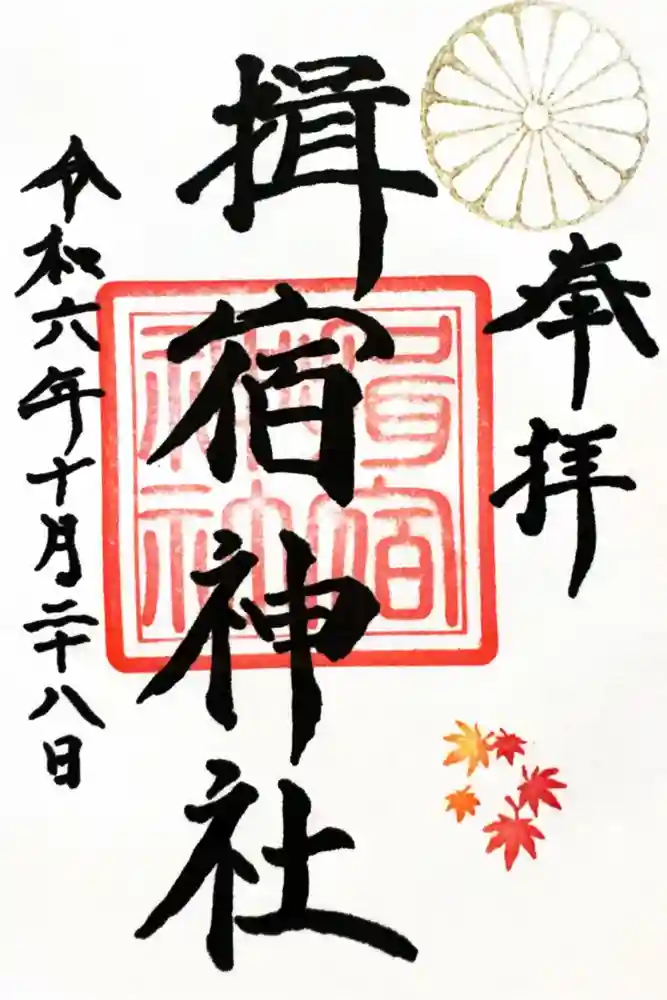 奉拝
揖宿神社
令和六年十月二十八日